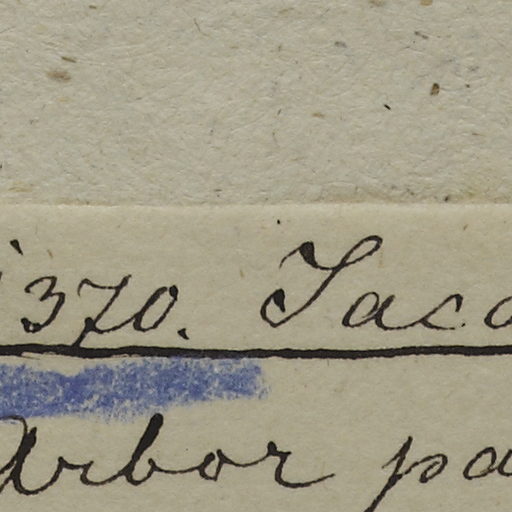 370. Jaca
Arbor pa